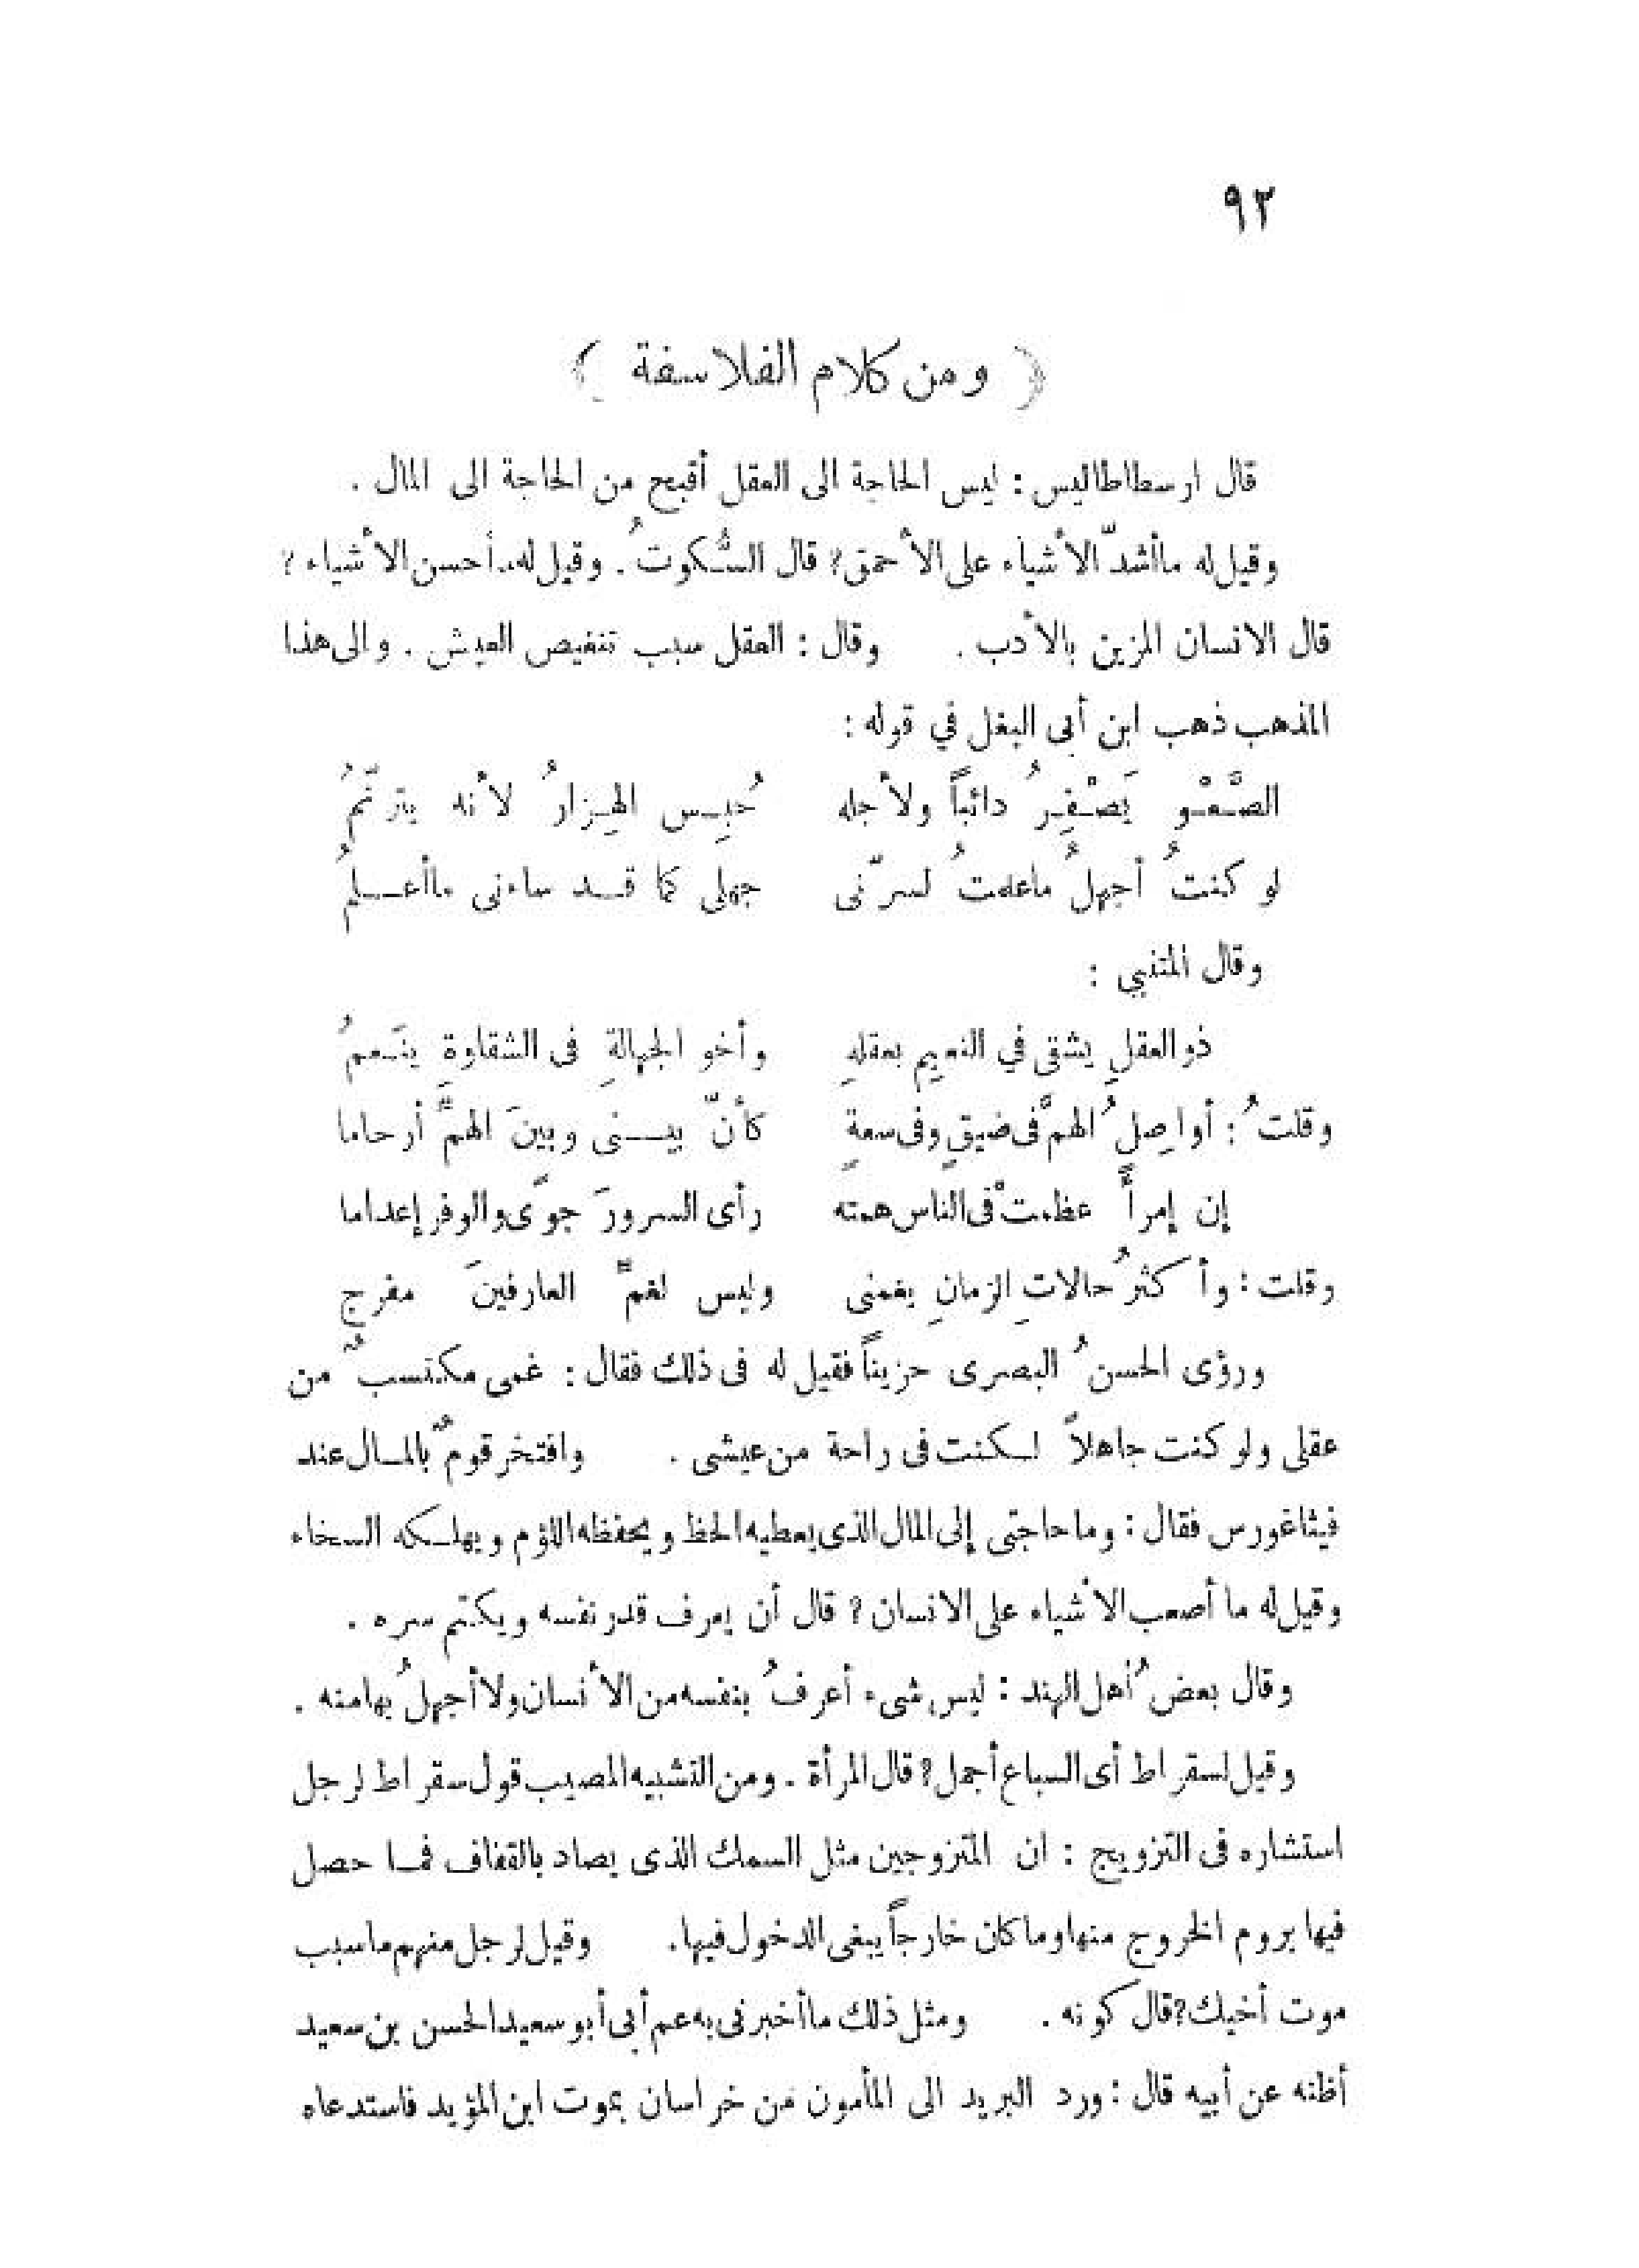 ٩٣
﴿ ومن كلام الفلاسفة ﴾
قال ارسطاطاليس : ليس الحاجة الى العقل أقبح من الحاجة الى المال .
وقيل له ماأشدّ الأشياء على الأحمق؟ قال السُّكوتُ . وقيل له أحسن الأشياء ؟
قال الانسان المزين بالأدب . وقال : العقل سبب تنغيص العيش . والى هذا
المذهب ذهب ابن أبى البغل في قوله :
الصَّعْـو يَصْـفِـرُ دائباً ولأجله حُبِـس الهِـزارُ لأنه يترنّمُ
لو كنتُ أجهلُ ماعلمتُ لسرّنى جهلى كما قـد ساءنى ماأعـلمُ
وقال المتنبي :
ذو العقلِ يشقى في النعيم بعقلهِ وأخو الجهالةِ فى الشقاوةِ ينَـعمُ
وقلتُ : أواصِلُ الهمَّ فى ضيقٍ وفى سعةٍ كأنّ بيـنى وبينَ الهمَّ أرحاما
إن إمرأً عظمتْ فى الناس همته رأى السرورَ جوًى والوفر إعداما
وقلت : وأكثرُ حالاتِ الزمانِ يغمنى وليس لغمّ العارفينَ مفرج
ورؤى الحسنُ البصرى حزيناً فقيل له فى ذلك فقال : غمى مكتسبٌ من
عقلى ولو كنت جاهلاً لـكنت فى راحة من عيشى . وافتخر قومٌ بالمـال عند
فيثاغورس فقال : وما حاجتى إلى المال الذى يعطيه الحظ ويحفظه اللؤم ويهلـكه السخاء
وقيل له ما أصعب الأشياء على الانسان ؟ قال أن يعرف قدر نفسه ويكتم سره .
وقال بعضُ أهل الهند : ليس شىء أعرفُ بنفسه من الأنسان ولا أجهلُ بها منه .
وقيل لسقراط أى السباع أجمل ؟ قال المرأة . ومن التشبيه المصيب قول سقراط لرجل
استشاره فى التزويج : ان المتزوجين مثل السمك الذى يصاد بالقفاف فمـا حصل
فيها يروم الخروج منها وما كان خارجاً يبغى الدخول فيها . وقيل لرجل منهم ما سبب
موت أخيك ؟ قال كونه . ومثل ذلك ماأخبرنى به عم أبى أبو سعيد الحسن بن سعيد
أظنه عن أبيه قال : ورد البريد الى المأمون من خراسان بموت ابن المؤيد فاستدعاه